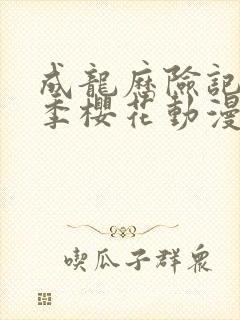 成龍歷險記
季櫻花動漫
喫瓜子群衆